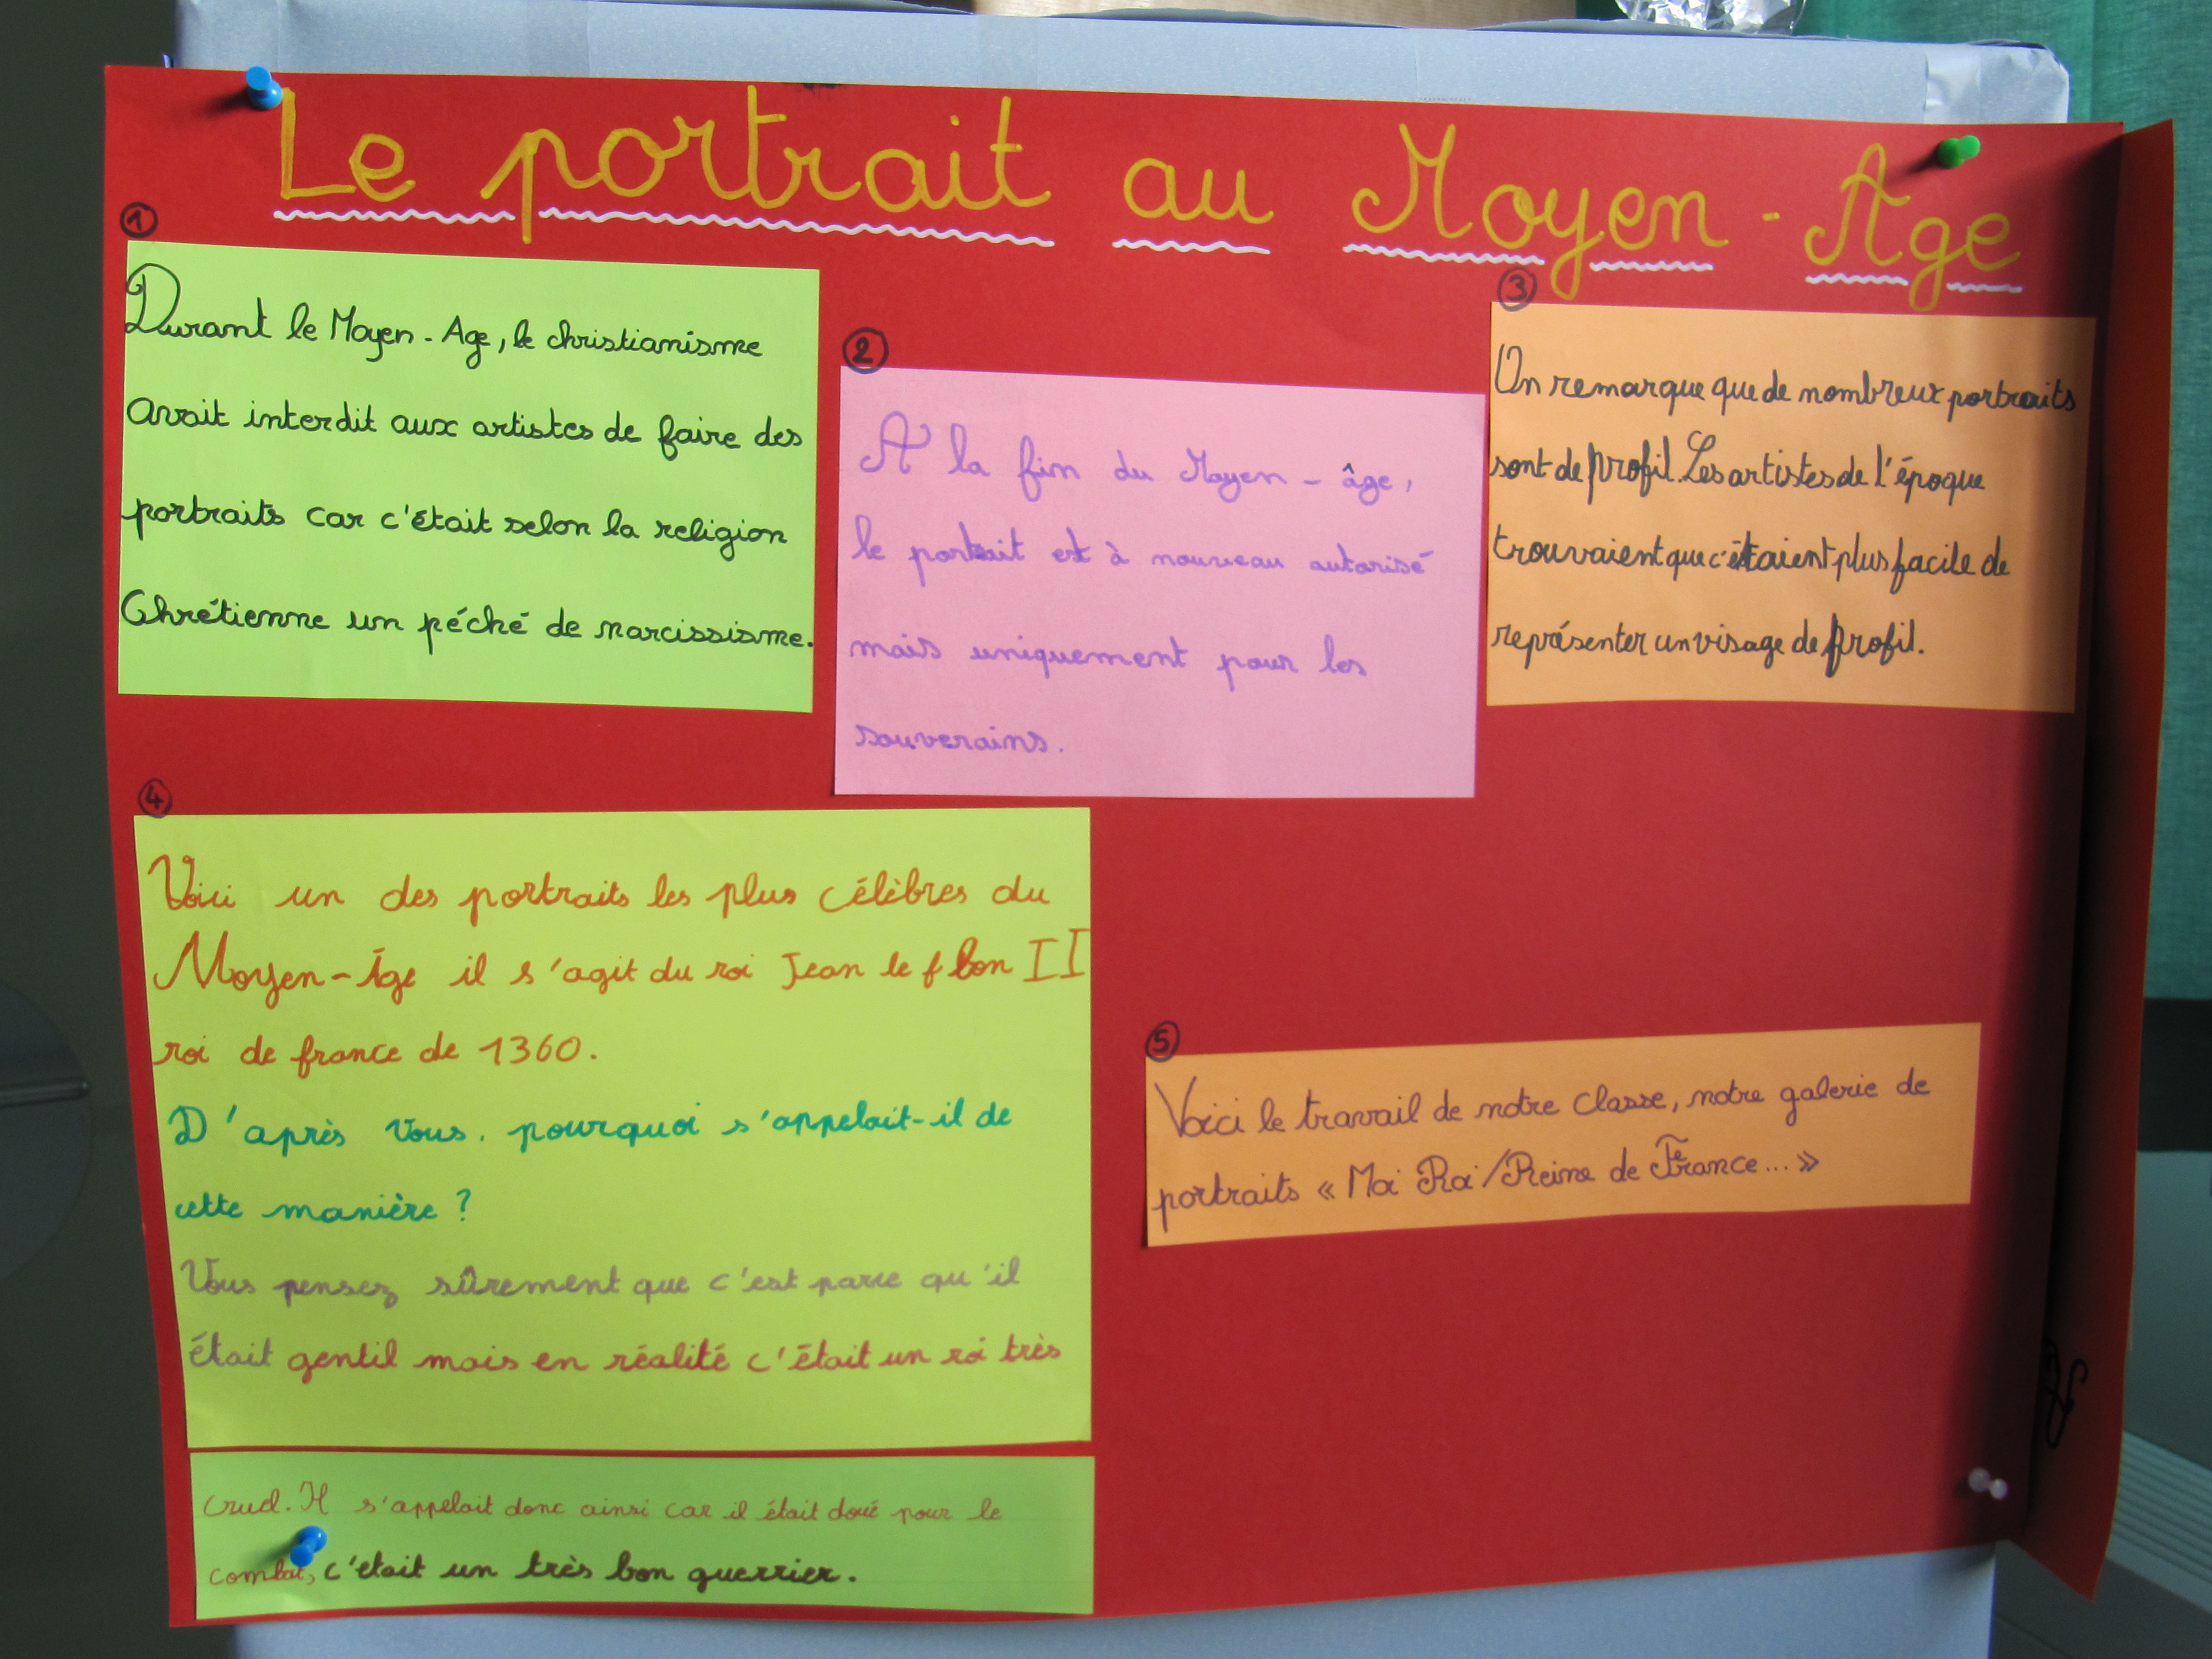 Le portrait au Moyen-Age
1
Durant le Moyen-Age, le christianisme
avait interdit aux artistes de faire des
portraits car c'était selon la religion
Chrétienne un péché de narcissisme.
2
A la fin du Moyen-âge,
le portrait est à nouveau autorisé
mais uniquement pour les
souverains.
3
On remarque que de nombreux portraits
sont de profil. Les artistes de l'époque
trouvaient que c'étaient plus facile de
représenter un visage de profil.
4
Voici un des portraits les plus célèbres du
Moyen-Âge il s'agit du roi Jean le f bon II
roi de france de 1360.
D'après vous. pourquoi s'appelait-il de
cette manière ?
Vous pensez sûrement que c'est parce qu'il
était gentil mais en réalité c'était un roi très
cruel. Il s'appelait donc ainsi car il était doué pour le
combat, c'etait un très bon guerrier.
5
Voici le travail de notre classe, notre galerie de
portraits « Moi Roi/Reine de France... »